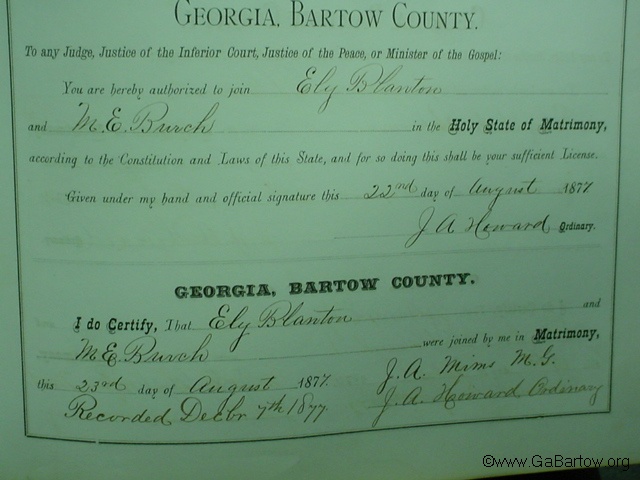 GEORGIA, BARTOW COUNTY.
To any Judge, Justice of the Inferior Court, Justice of the Peace, or Minister of the Gospel:
You are hereby authorized to join Ely Blanton
and M.E. Burch in the Holy State of Matrimony,
according to the Constitution and Laws of this State, and for so doing this shall be your sufficient License.
Given under my hand and official signature this 22nd day of August 1877
J A Howard Ordinary.
GEORGIA, BARTOW COUNTY.
I do Certify, That Ely Blanton and
M.E. Burch were joined by me in Matrimony,
this 23rd day of August 1877. J. A. Mims M.G.
Recorded Decbr 7th 1877 J. A. Howard Ordinary
©www.GaBartow.org